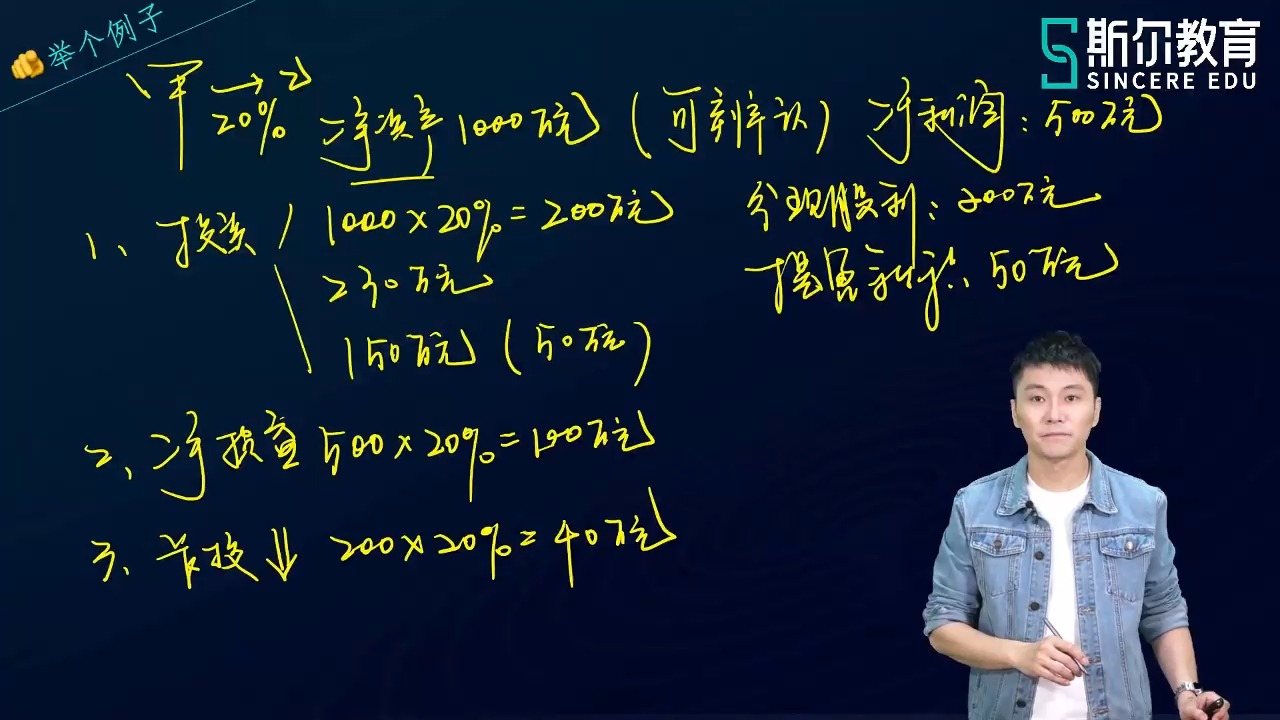 举个例子
斯尔教育
SINCERE EDU
甲 → 乙
20% 净资产1000万元 (可辨认) 净利润:500万元
1、投资 1000×20%=200万元
230万元
150万元 (50万元)
分现股利:200万元
提盈利积:50万元
2、净损益 500×20%=100万元
3、长投↓ 200×20%=40万元